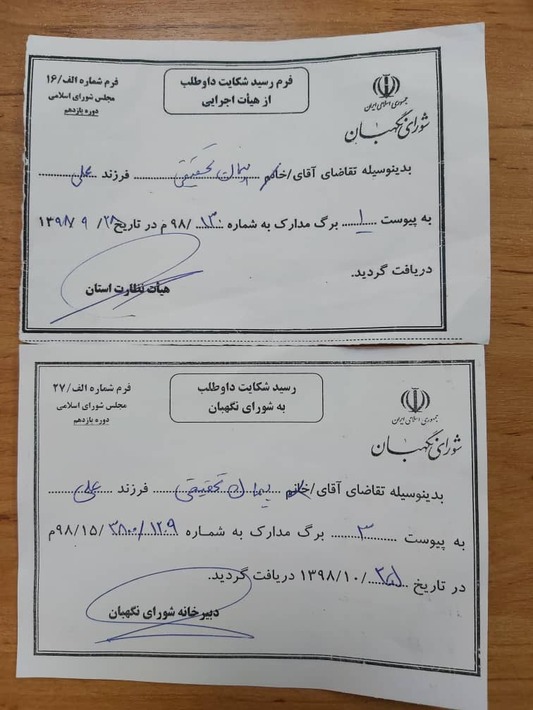 جمهوری اسلامی ایران
شورای نگهبان
فرم رسید شکایت داوطلب
از هیأت اجرایی
فرم شماره الف/۱۶
مجلس شورای اسلامی
دوره یازدهم
بدینوسیله تقاضای آقای/خانم پیمان تحقیقی فرزند علی
به پیوست ۱ برگ مدارک به شماره ۱۳۰/۹۸ م در تاریخ ۲۸/ ۹ /۱۳۹۸
دریافت گردید.
هیأت نظارت استان
جمهوری اسلامی ایران
شورای نگهبان
رسید شکایت داوطلب
به شورای نگهبان
فرم شماره الف/۲۷
مجلس شورای اسلامی
دوره یازدهم
بدینوسیله تقاضای آقای/خانم پیمان تحقیقی فرزند علی
به پیوست ۳ برگ مدارک به شماره ۹۸/۱۵/م
در تاریخ /۱۳۹۸/۱۰ دریافت گردید.
دبیرخانه شورای نگهبان